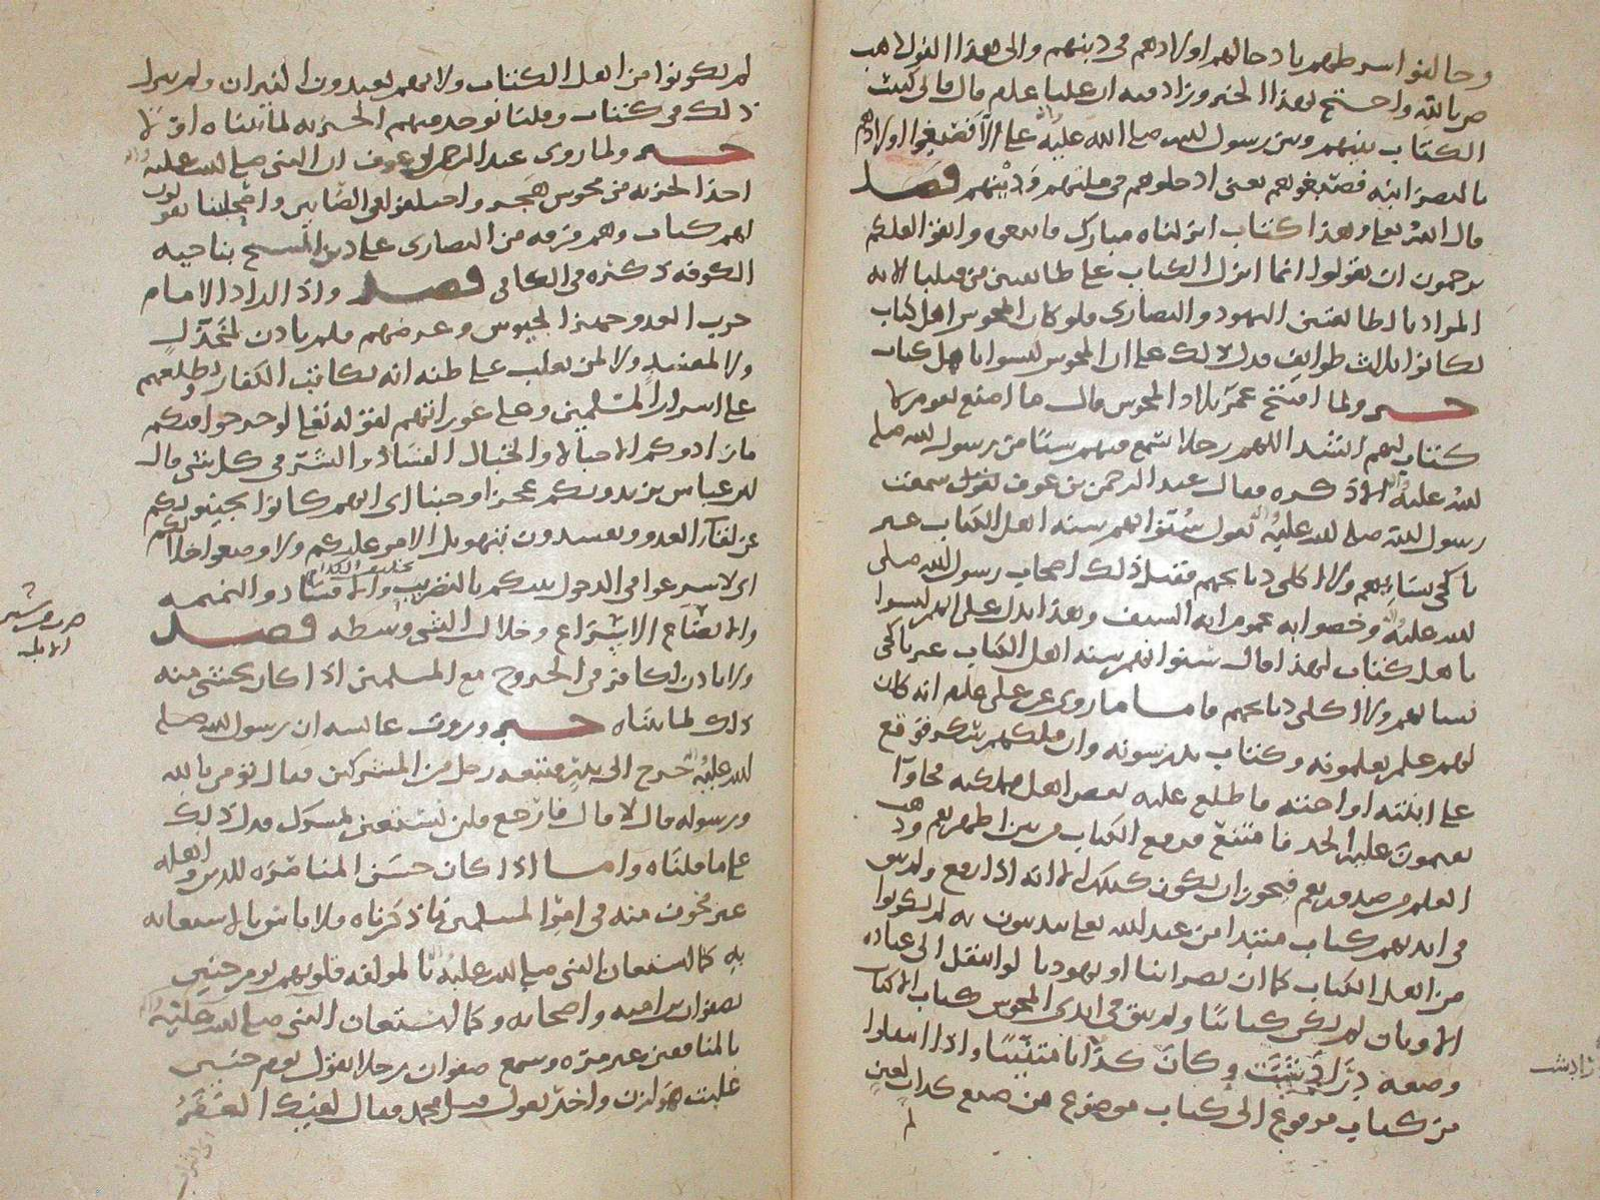 وخالفوا شرطهم بادخالهم اولادهم في دينهم والى هذا القول ذهب
م بالله واحتج بهذا الخبر وزاد فيه ان عليا علم قال قال لي كتبت
الكتاب بينهم وبين رسول الله صلى الله عليه على الا يصبغوا اولادهم
بالنصرانيه فصبغوهم يعني ادخلوهم في ملتهم ودينهم فصل
قال الله تعلى وهذا كتاب انزلناه مبارك فاتبعوه واتقوا لعلكم
ترحمون ان تقولوا انما انزل الكتاب على طائفتين من قبلنا الايه
المراد بالطائفتين اليهود والنصارى فلو كان المجوس اهل كتاب
لكانوا ثلاث طوايف فدل ذلك على ان المجوس ليسوا باهل كتاب
خبر ولما افتتح عمر بلاد المجوس قال ما اصنع بقوم لا
كتاب لهم انشد اللهم رجلا سمع فيهم شيئا من رسول الله صلى
الله عليه الا ذكره فقال عبد الرحمن بن عوف سمعت
رسول الله صلى الله عليه يقول سنوا بهم سنة اهل الكتاب غير
ناكحي نسائهم ولا اكلي ذبائحهم فقبل ذلك اصحاب رسول الله صلى
الله عليه وخصوا به عموم ايه السيف وهذا يدل على انهم ليسوا
باهل كتاب لهذا قال سنوا بهم سنة اهل الكتاب غير ناكحي
نسائهم ولا اكلي ذبائحهم فاما ما روي عن علي علم انه كان
لهم علم يعلمونه وكتاب يدرسونه وان ملكهم سكر فوقع
على ابنته او اخته فاطلع عليه بعض اهل مملكته فجاوا
يقيمون عليه الحد فامتنع فرفع الكتاب من بين اظهرهم وذهب
العلم من صدورهم فيجوز ان يكون كذلك الا انه اذا رفع وليس
في ايديهم كتاب مبتدا من عند الله تعلى يدينون به لم يكونوا
من اهل الكتاب كما ان نصرانيا او يهوديا لو انتقل الى عبادة
الاوثان لم يكن كتابيا ولم يبق في ايدي المجوس كتاب الا كتاب
وضعه وكان كذابا متنبيا واذا انتقلوا
من كتاب مرفوع الى كتاب موضوع من صنع كذاب لعين
لم
زرادشت
لم يكونوا من اهل الكتاب ولانهم يعبدون النيران ولم ينزل
ذلك في كتاب وقلنا توخذ منهم الجزيه لما بيناه اولا
خبر ولما روى عبد الرحمن بن عوف ان النبي صلى الله عليه
اخذ الجزيه من مجوس هجر واختلفوا في الصابين واصحابنا يقولون
لهم كتاب وهم فرقه من النصارى على دين المسيح بناحيه
الكوفه ذكره في الكافي فصل واذا اراد الامام
حرب العدو جهز الجيوش وعرضهم فلم ياذن لمخذل
ولا لمفسد ولا لمن يغلب على ظنه انه يكاتب الكفار ويطلعهم
على اسرار المسلمين وعلى عوراتهم لقوله تعلى لو خرجوا فيكم
ما زادوكم الا خبالا والخبال الفساد والشر في كل شي قال
ابن عباس يزيدونكم عجزا وجبنا اي انهم كانوا يجبنونكم
عن لقاء العدو ويفسدون بتهويل الامر عليكم ولاوضعوا خلالكم
اي لاسرعوا في الدخول بينكم بالتضريب والافساد والنميمه
والايضاع الاسراع وخلال الشي وسطه فصل
ولا ياذن لكافر في الخروج مع المسلمين اذا كان يختشي منه
ذلك لما بيناه خبر وروت عائشه ان رسول الله صلى
الله عليه خرج الى بدر فتبعه رجل من المشركين فقال تومن بالله
ورسوله قال لا قال فارجع فلن نستعين بمشرك فدل ذلك
على ما قلناه واما اذا كان حسن المناصره للدين واهله
غير مخوف منه في امر المسلمين ما ذكرناه فلا باس بالاستعانه
به كما استعان النبي صلى الله عليه بالمولفه قلوبهم يوم حنين
بصفوان بن اميه واصحابه وكما استعان النبي صلى الله عليه
بالمنافقين غير مره وسمع صفوان رجلا يقول يوم حنين
غلبت هوازن واخر يقول قتل محمد فقال بفيك العفر